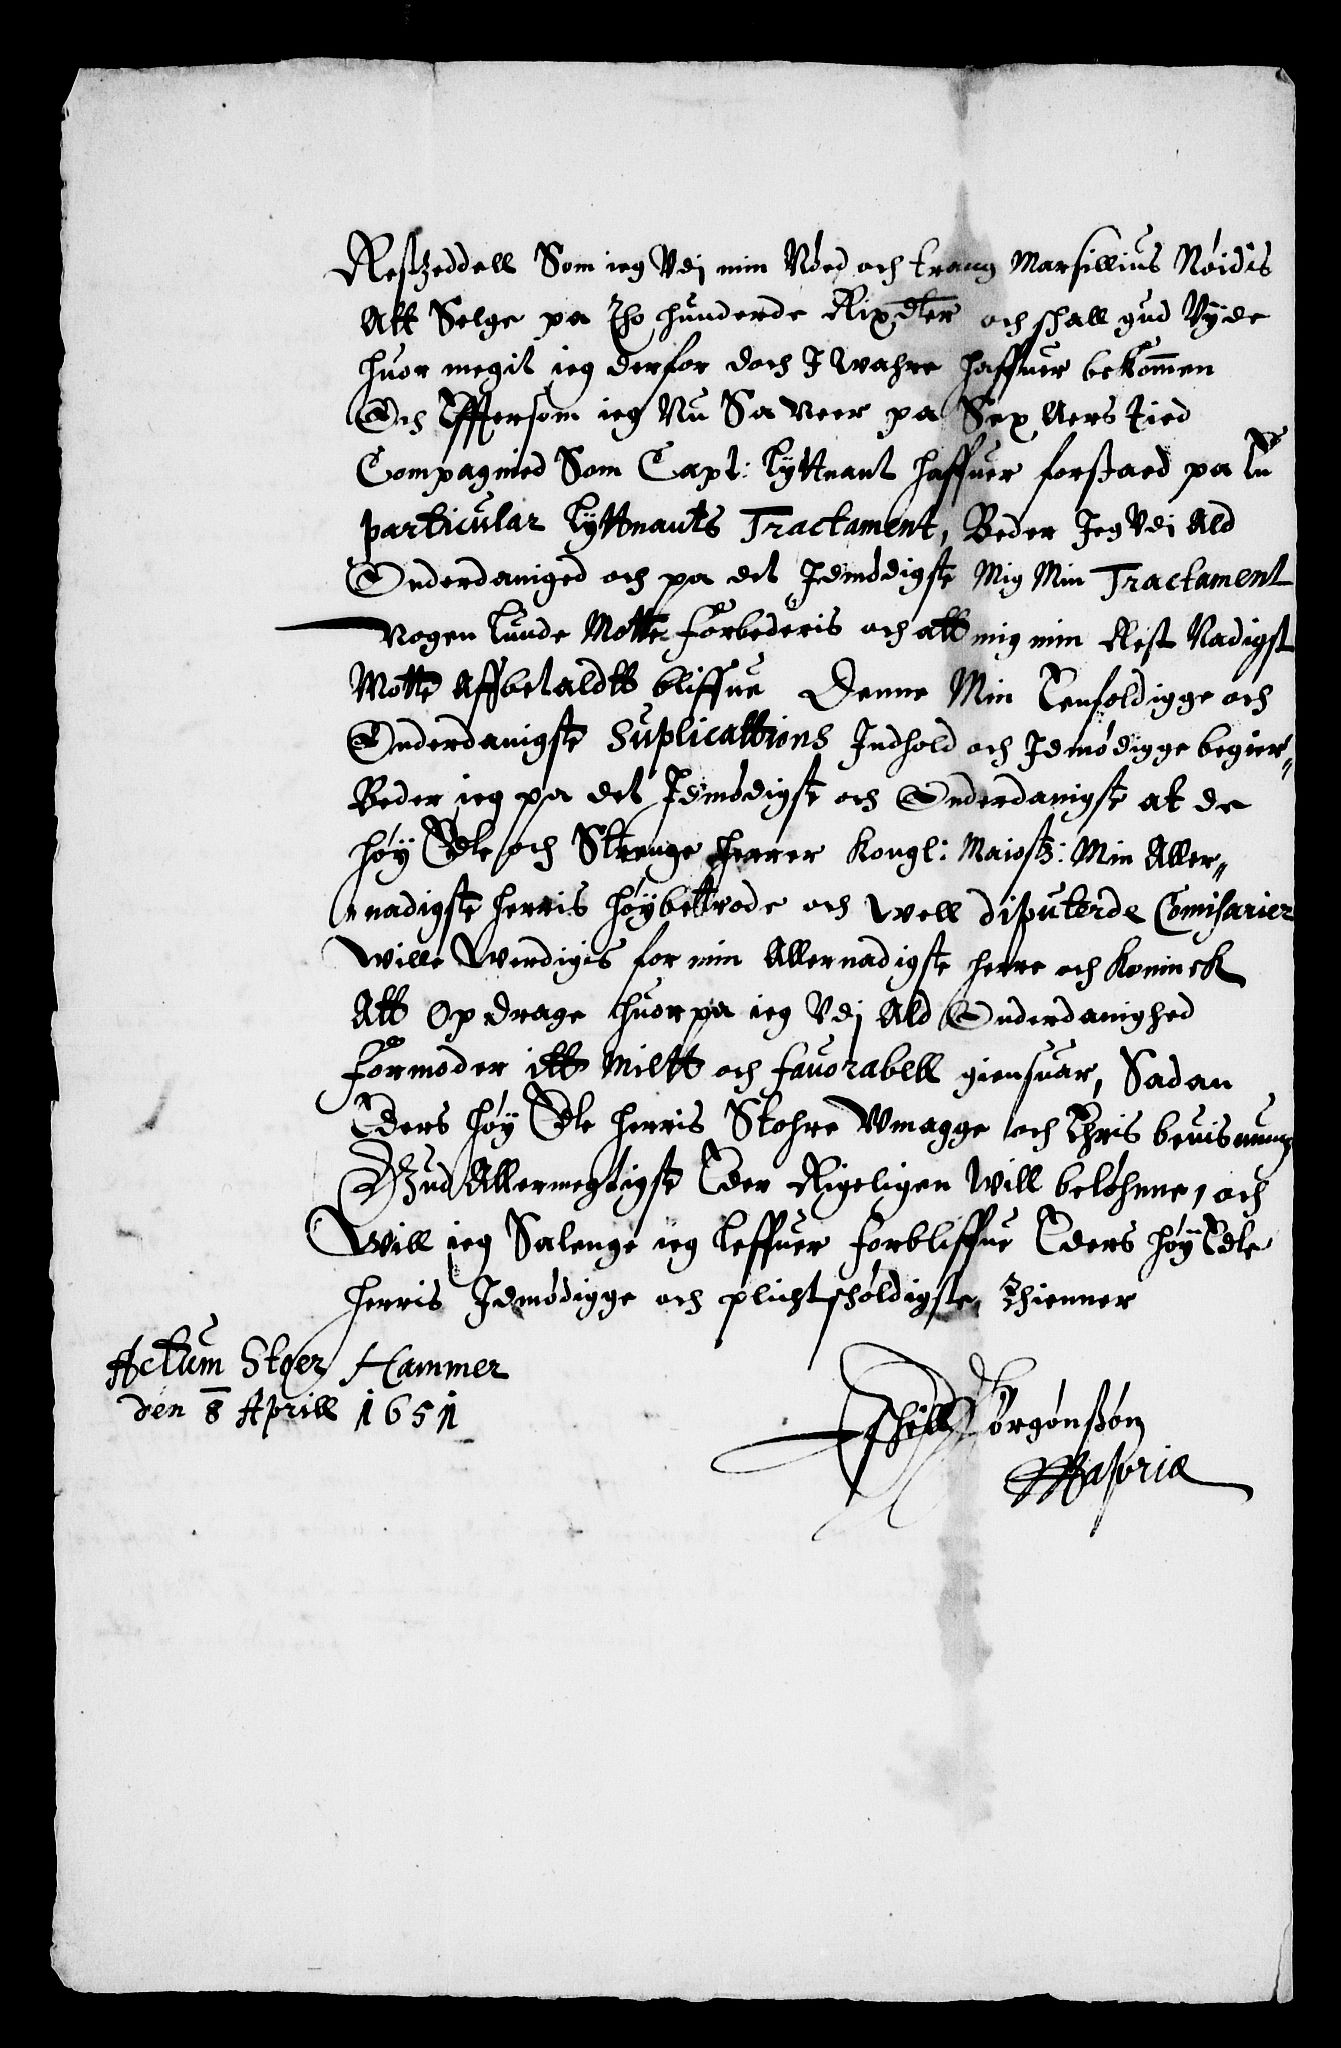 Restzeddell Som ieg Vdj min Nöed och trang Marsillius Nöidis
Att Selge pa Tho hunderde Rixdler och shall gud Vyde
huor megit ieg derfor doch I wahre haffuer bekommen
Och Effttersom ieg Nu Sa Neer pa Sex Aers Tied
Compagnied Som Capt: lyttnant haffuer forstaed pa En
particular lyttnants Tractament, Beder Jeg Vdi Ald
Onderdaniged och pa det Idmödigste Mig Min Tractament
Nogen lunde Motte forbederis och att mig min Rest Nadigst
Motte Affbetaldtt bliffue Denne Min Eenfoldigge och
Onderdanigste Suplicattions Indhold och Idmödigge begier„
Beder ieg pa det Idmödigste och Onderdanigste at de
höy Edle och Strenge herrer Kongl: Maiestz: Min Aller„
„nadigste herris höybettrode och well diputerde Comisarier
Wille Werdigis for min Allernadigste herre och Koninck
Att Opdrage huorpa ieg Vdj Ald Onderdanighed
Formoder itt Miltt och favorabell giensuar, Sadan
Eders höy Edle herris Stohre Vmagge och Ehris beuisnung
Gud Allermegtigste Eder Rigeligen will belöhnne, och
Will ieg Salenge ieg leffuer forbliffue Eders höy Edle
herris Idmödigge och plichtsholdigste, Thienner
Actum Stoer Hammer
den 8 Aprill 1651
Eshell Jörgönssön
Mapria